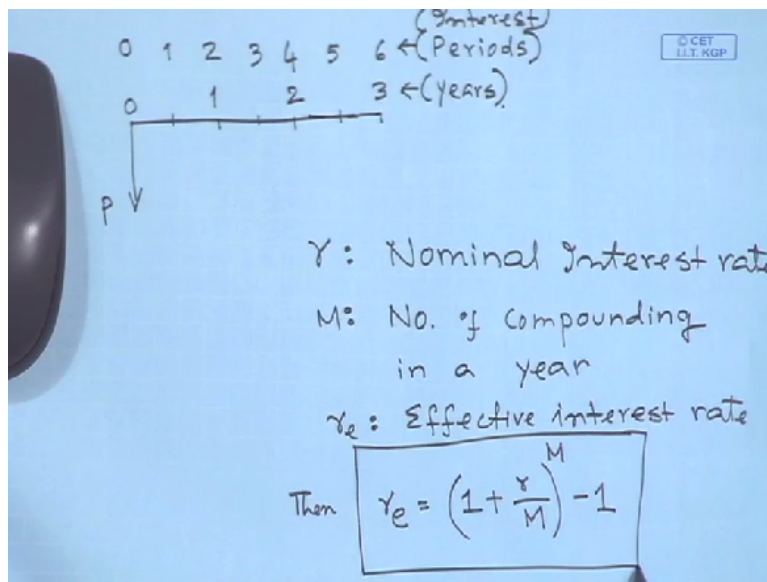 (Interest
0 1 2 3 4 5 6 ←(Periods)
© CET
I.I.T. KGP
0 1 2 3 ←(years)
P
r: Nominal Interest rate
M: No. of compounding
in a year
rₑ: Effective interest rate
Then rₑ = (1 + r/M)^M - 1